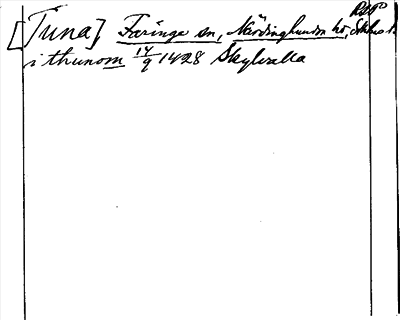 RAP
[Tuna] Faringe sn, Närdinghundra hd, Sthlms l.
i thunom 14/9 1428 Skylvalla